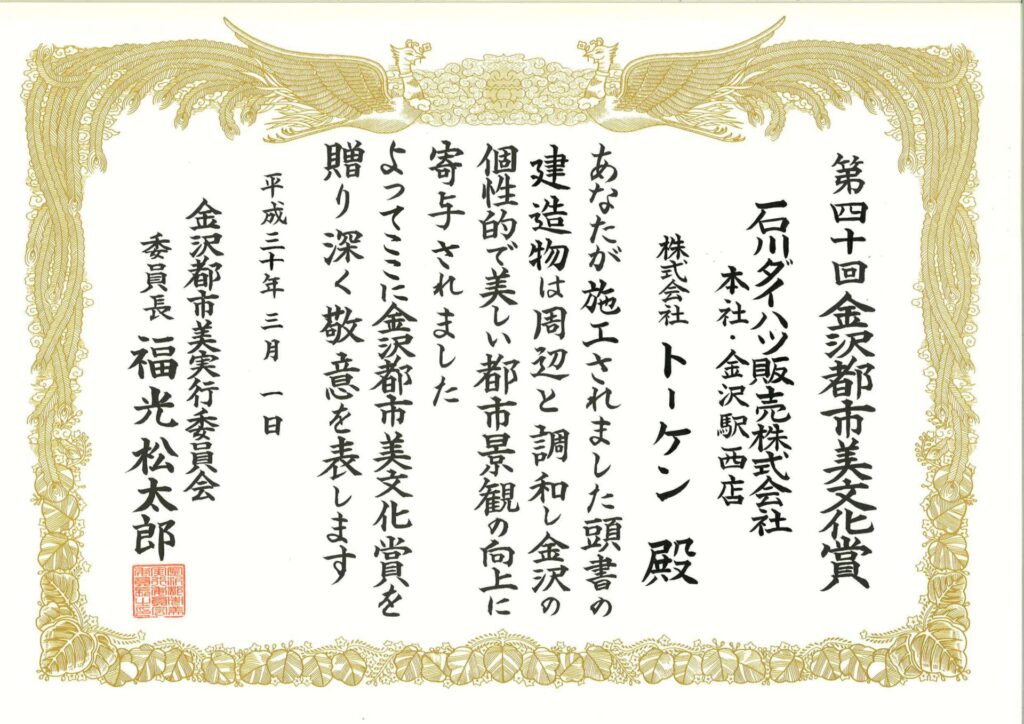 第四十回金沢都市美文化賞
石川ダイハツ販売株式会社
本社・金沢駅西店
株式会社 トーケン 殿
あなたが施工されました頭書の
建造物は周辺と調和し金沢の
個性的で美しい都市景観の向上に
寄与されました
よってここに金沢都市美文化賞を
贈り深く敬意を表します
平成三十年三月一日
金沢都市美実行委員会
委員長 福光松太郎